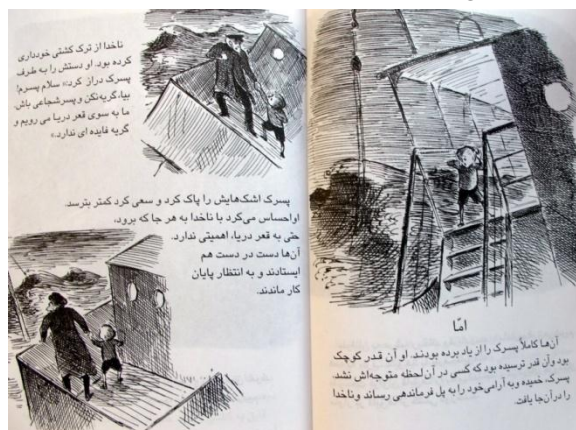 امّا
آن‌ها کاملاً پسرک را از یاد برده بودند. او آن قدر کوچک
بود و آن قدر ترسیده بود که کسی در آن لحظه متوجه‌اش نشد.
پسرک، خمیده و به آرامی خود را به پل فرماندهی رساند و ناخدا
را در آن‌جا یافت.
ناخدا از ترک کشتی خودداری
کرده بود. او دستش را به طرف
پسرک دراز کرد: «سلام پسرم!
بیا، گریه نکن و پسر شجاعی باش.
ما به سوی قعر دریا می رویم و
گریه فایده ای ندارد.»
پسرک اشک‌هایش را پاک کرد و سعی کرد کمتر بترسد.
او احساس می‌کرد با ناخدا به هر جا که برود،
حتی به قعر دریا، اهمیتی ندارد.
آن‌ها دست در دست هم
ایستادند و به انتظار پایان
کار ماندند.